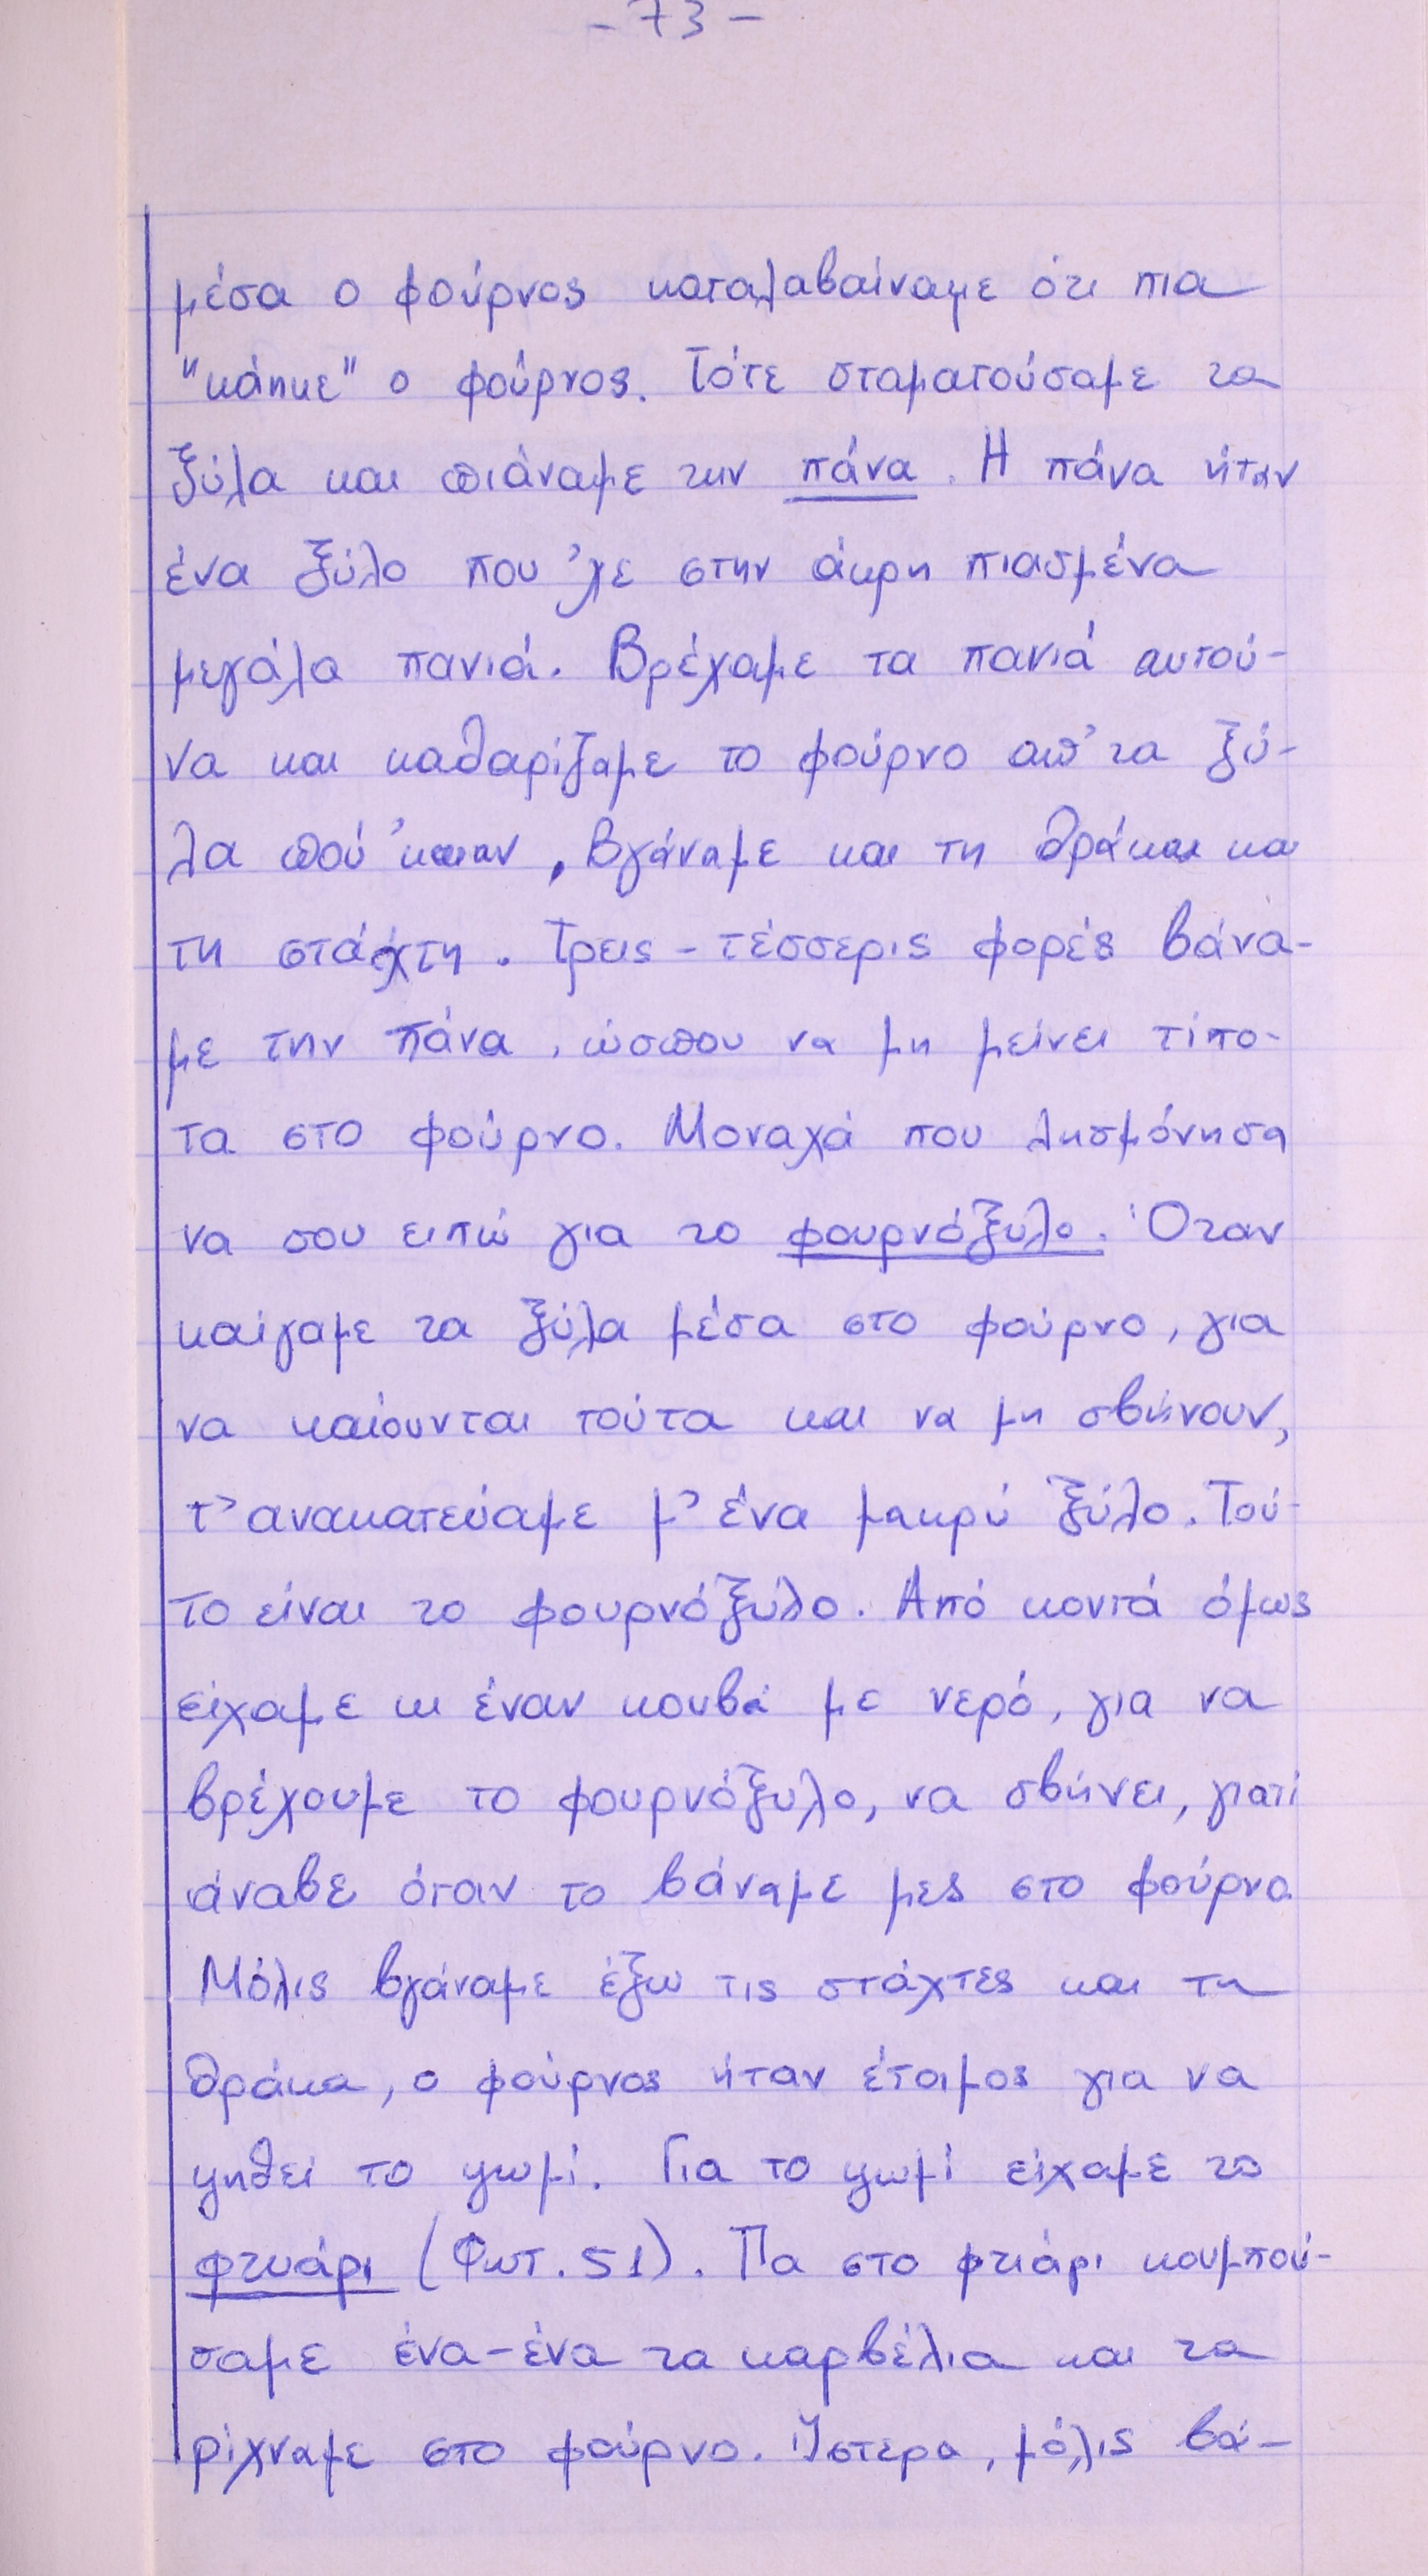 - 73 -
μέσα ο φούρνος καταλαβαίναμε ότι πια
"κάηκε" ο φούρνος. Τότε σταματούσαμε τα
ξύλα και πιάναμε την πάνα. Η πάνα ήταν
ένα ξύλο που 'χε στην άκρη πιασμένα
μεγάλα πανιά. Βρέχαμε τα πανιά αυτού-
να και καθαρίζαμε το φούρνο απ' τα ξύ-
λα πού 'καιαν, βγάναμε και τη θράκα και
τη στάχτη. Τρεις - τέσσερις φορές βάνα-
με την πάνα, ώσπου να μη μείνει τίπο-
τα στο φούρνο. Μοναχά που λησμόνησα
να σου ειπώ για το φουρνόξυλο. Όταν
καίγαμε τα ξύλα μέσα στο φούρνο, για
να καίουνται τούτα και να μη σβήνουν,
τ' ανακατεύαμε μ' ένα μακρύ ξύλο. Τού-
το είναι το φουρνόξυλο. Από κοντά όμως
είχαμε κι έναν κουβά με νερό, για να
βρέχουμε το φουρνόξυλο, να σβήνει, γιατί
άναβε όταν το βάναμε μες στο φούρνο.
Μόλις βγάναμε έξω τις στάχτες και τη
θράκα, ο φούρνος ήταν έτοιμος για να
ψηθεί το ψωμί. Για το ψωμί είχαμε το
φτυάρι (Φωτ. 51). Πα στο φτιάρι κουμπού-
σαμε ένα-ένα τα καρβέλια και τα
ρίχναμε στο φούρνο. Ύστερα, μόλις βά-